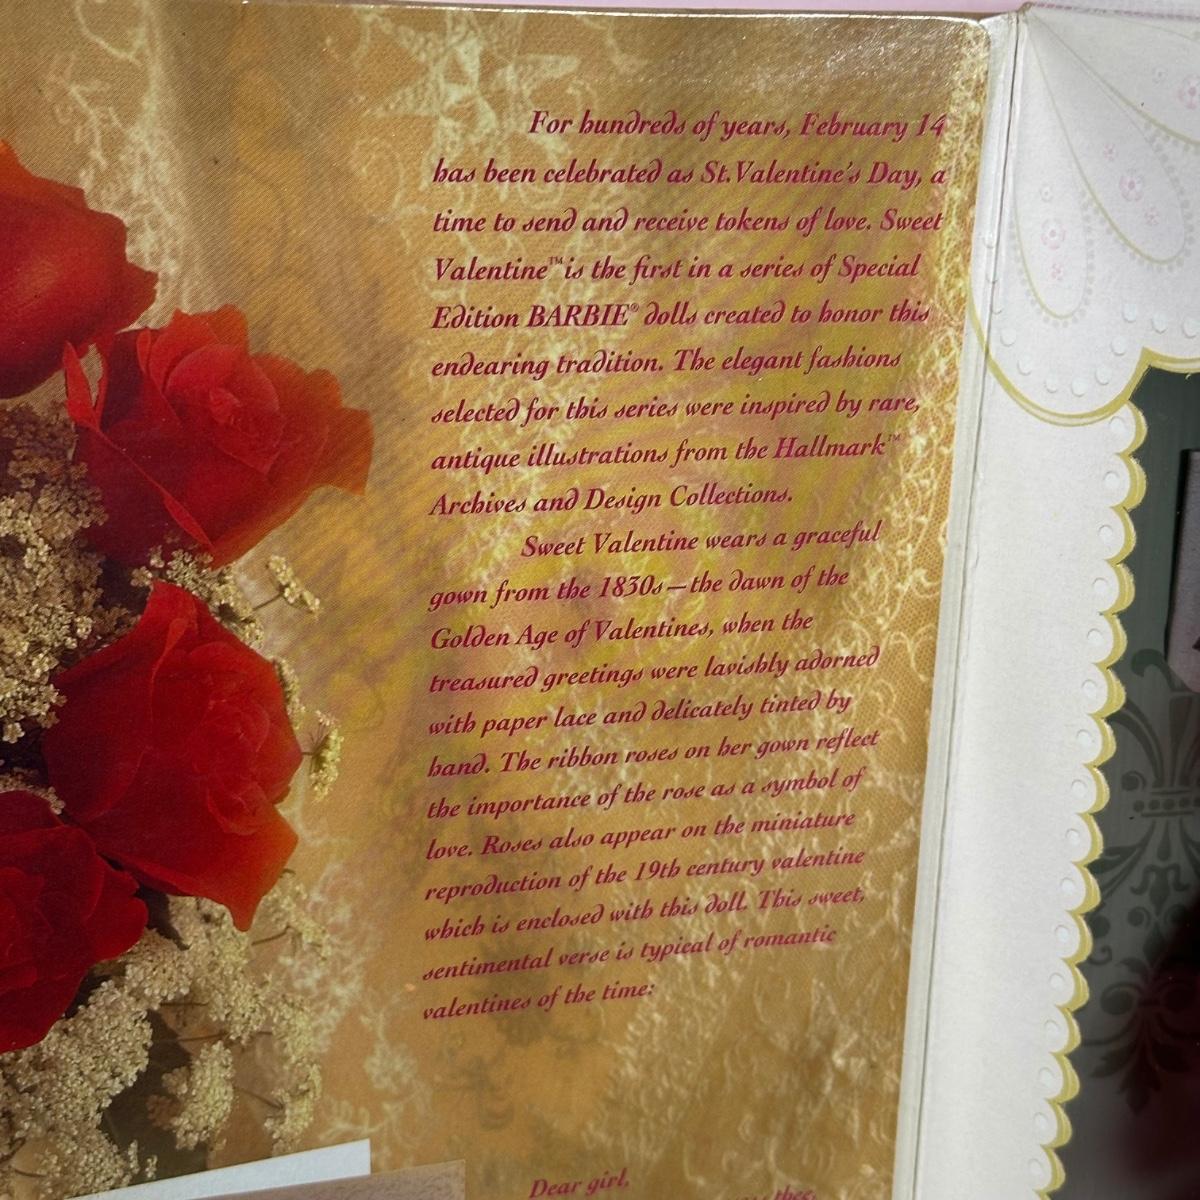 For hundreds of years, February 14
has been celebrated as St. Valentine's Day, a
time to send and receive tokens of love. Sweet
Valentine™ is the first in a series of Special
Edition BARBIE® dolls created to honor this
endearing tradition. The elegant fashions
selected for this series were inspired by rare,
antique illustrations from the Hallmark™
Archives and Design Collections.
Sweet Valentine wears a graceful
gown from the 1830s—the dawn of the
Golden Age of Valentines, when the
treasured greetings were lavishly adorned
with paper lace and delicately tinted by
hand. The ribbon roses on her gown reflect
the importance of the rose as a symbol of
love. Roses also appear on the miniature
reproduction of the 19th century valentine
which is enclosed with this doll. This sweet,
sentimental verse is typical of romantic
valentines of the time:
Dear girl,
thee,